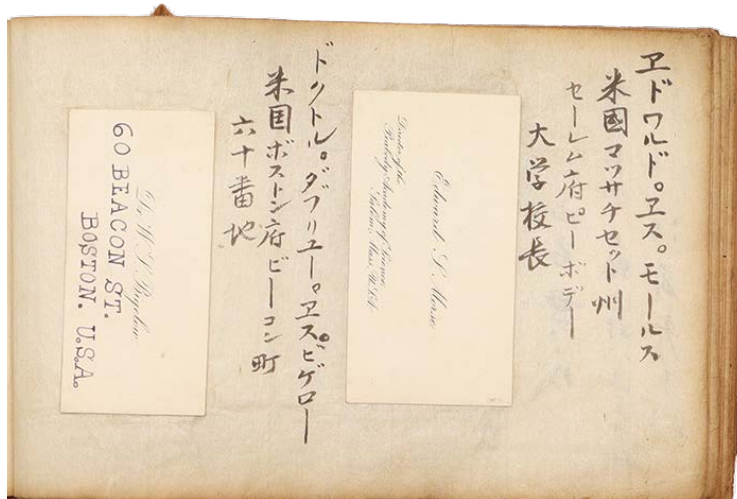 ヱドワルド。ヱス。モールス
米國マッサチセット州
セーレム府ピーボデー
大学校長
Edward S. Morse
Director of the
Peabody Academy of Science,
Salem, Mass. U.S.A.
ドクトル。ダブリユー。ヱスビゲロー
米国ボストン府ビーコン町
六十番地
Dr. W. S. Bigelow
60 BEACON ST.
BOSTON. U.S.A.